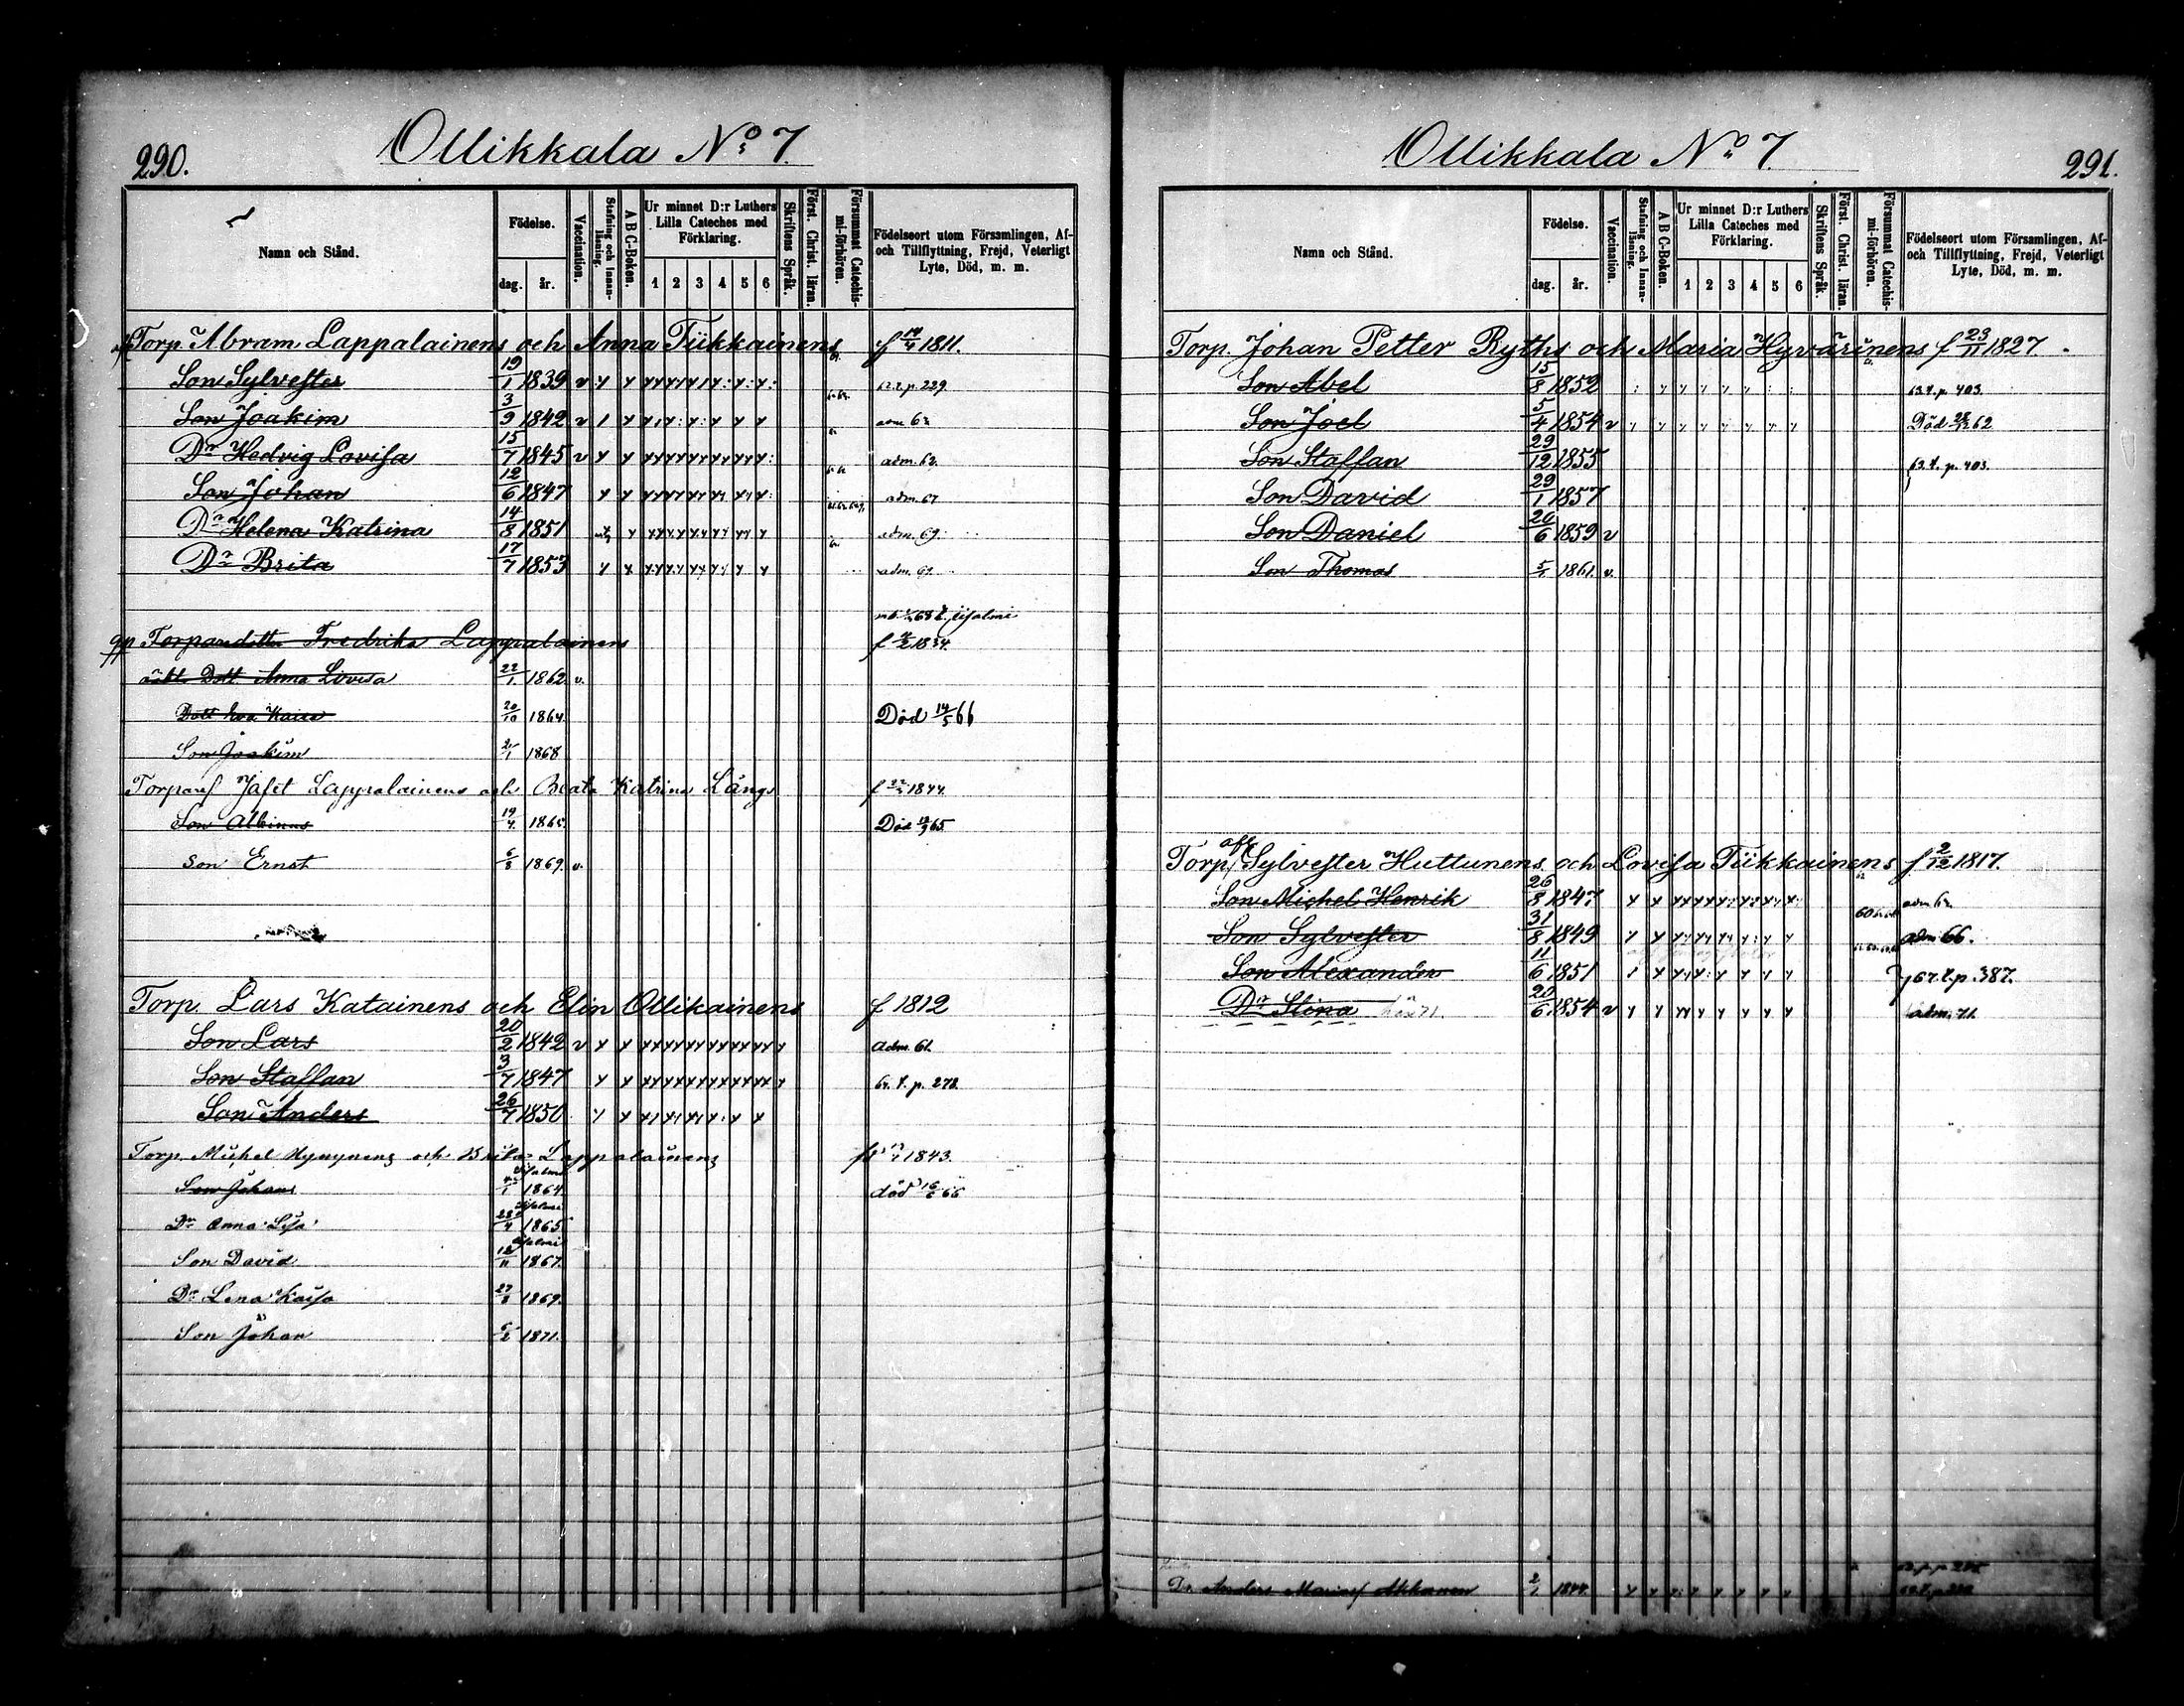 290.
Ollikkala No 7.
Namn och Stånd.
Födelse.
dag. år.
Vaccination.
Stafning och Innan-läsning.
A B C-Boken.
Ur minnet D:r Luthers Lilla Cateches med Förklaring.
1 2 3 4 5 6
Skriftens Språk.
Först. Christ. läran.
Försummat Catechis-mi-förhören.
Födelseort utom Församlingen, Af- och Tillflyttning, Frejd, Veterligt Lyte, Död, m. m.
Torp. Abram Lappalainens och Anna Tiikkainens 1811.
Son Sylvester 19/1 1839 v p. 229
Son Joakim 3/9 1842 v
Dr Hedvig Lovisa 15/7 1845 v adm. 62.
Son Johan 12/6 1847 adm. 67
Dr Helena Katrina 14/8 1851 adm. 69
Dr Brita 17/7 1853 adm. 69
Fredrika Lappalainens 1834.
Dott. Anna Lovisa 22/1 1862 v.
Dott Eva Kaisa 20/10 1864. Död 14/5 66
Son Joakim 1868
Jafet Lappalainens och Beata Katrina Långs 1844.
Son Albinus 19/4 1865. Död 65.
Son Ernst 6/8 1869. v.
Torp. Lars Katainens och Elin Ollikainens f 1812
Son Lars 20/2 1842 v adm. 61.
Son Staffan 3/7 1847 t. p. 278.
Son Anders 26/7 1850
Torp. Michel Hynynens och Brita Lappalainens 1843.
Son Johan 1864. död 16/6 66
Dr Anna Lisa 1865
Son David 1867.
Dr Lena Kaisa 27/8 1869.
Son Johan 1871.
Ollikkala No 7.
291.
Namn och Stånd.
Födelse.
dag. år.
Vaccination.
Stafning och Innan-läsning.
A B C-Boken.
Ur minnet D:r Luthers Lilla Cateches med Förklaring.
1 2 3 4 5 6
Skriftens Språk.
Först. Christ. läran.
Försummat Catechis-mi-förhören.
Födelseort utom Församlingen, Af- och Tillflyttning, Frejd, Veterligt Lyte, Död, m. m.
Torp. Johan Petter Ryths och Maria Hyvärinens f 23/11 1827.
Son Abel 15/8 1852 63. t. p. 403.
Son Joel 5/4 1854 v Död 62
Son Staffan 29/12 1855 63. t. p. 403.
Son David 29/1 1857
Son Daniel 20/6 1859 v
Son Thomas 1861. v.
Torp. afl. Sylvester Huttunens och Lovisa Tiikkainens f 2/12 1817.
Son Michel Henrik 26/8 1847
Son Sylvester 31/8 1849 adm 66.
Son Alexander 11/6 1851 67. t. p. 387.
Dr Stina 20/6 1854 v adm. 71.
Anders 1844.